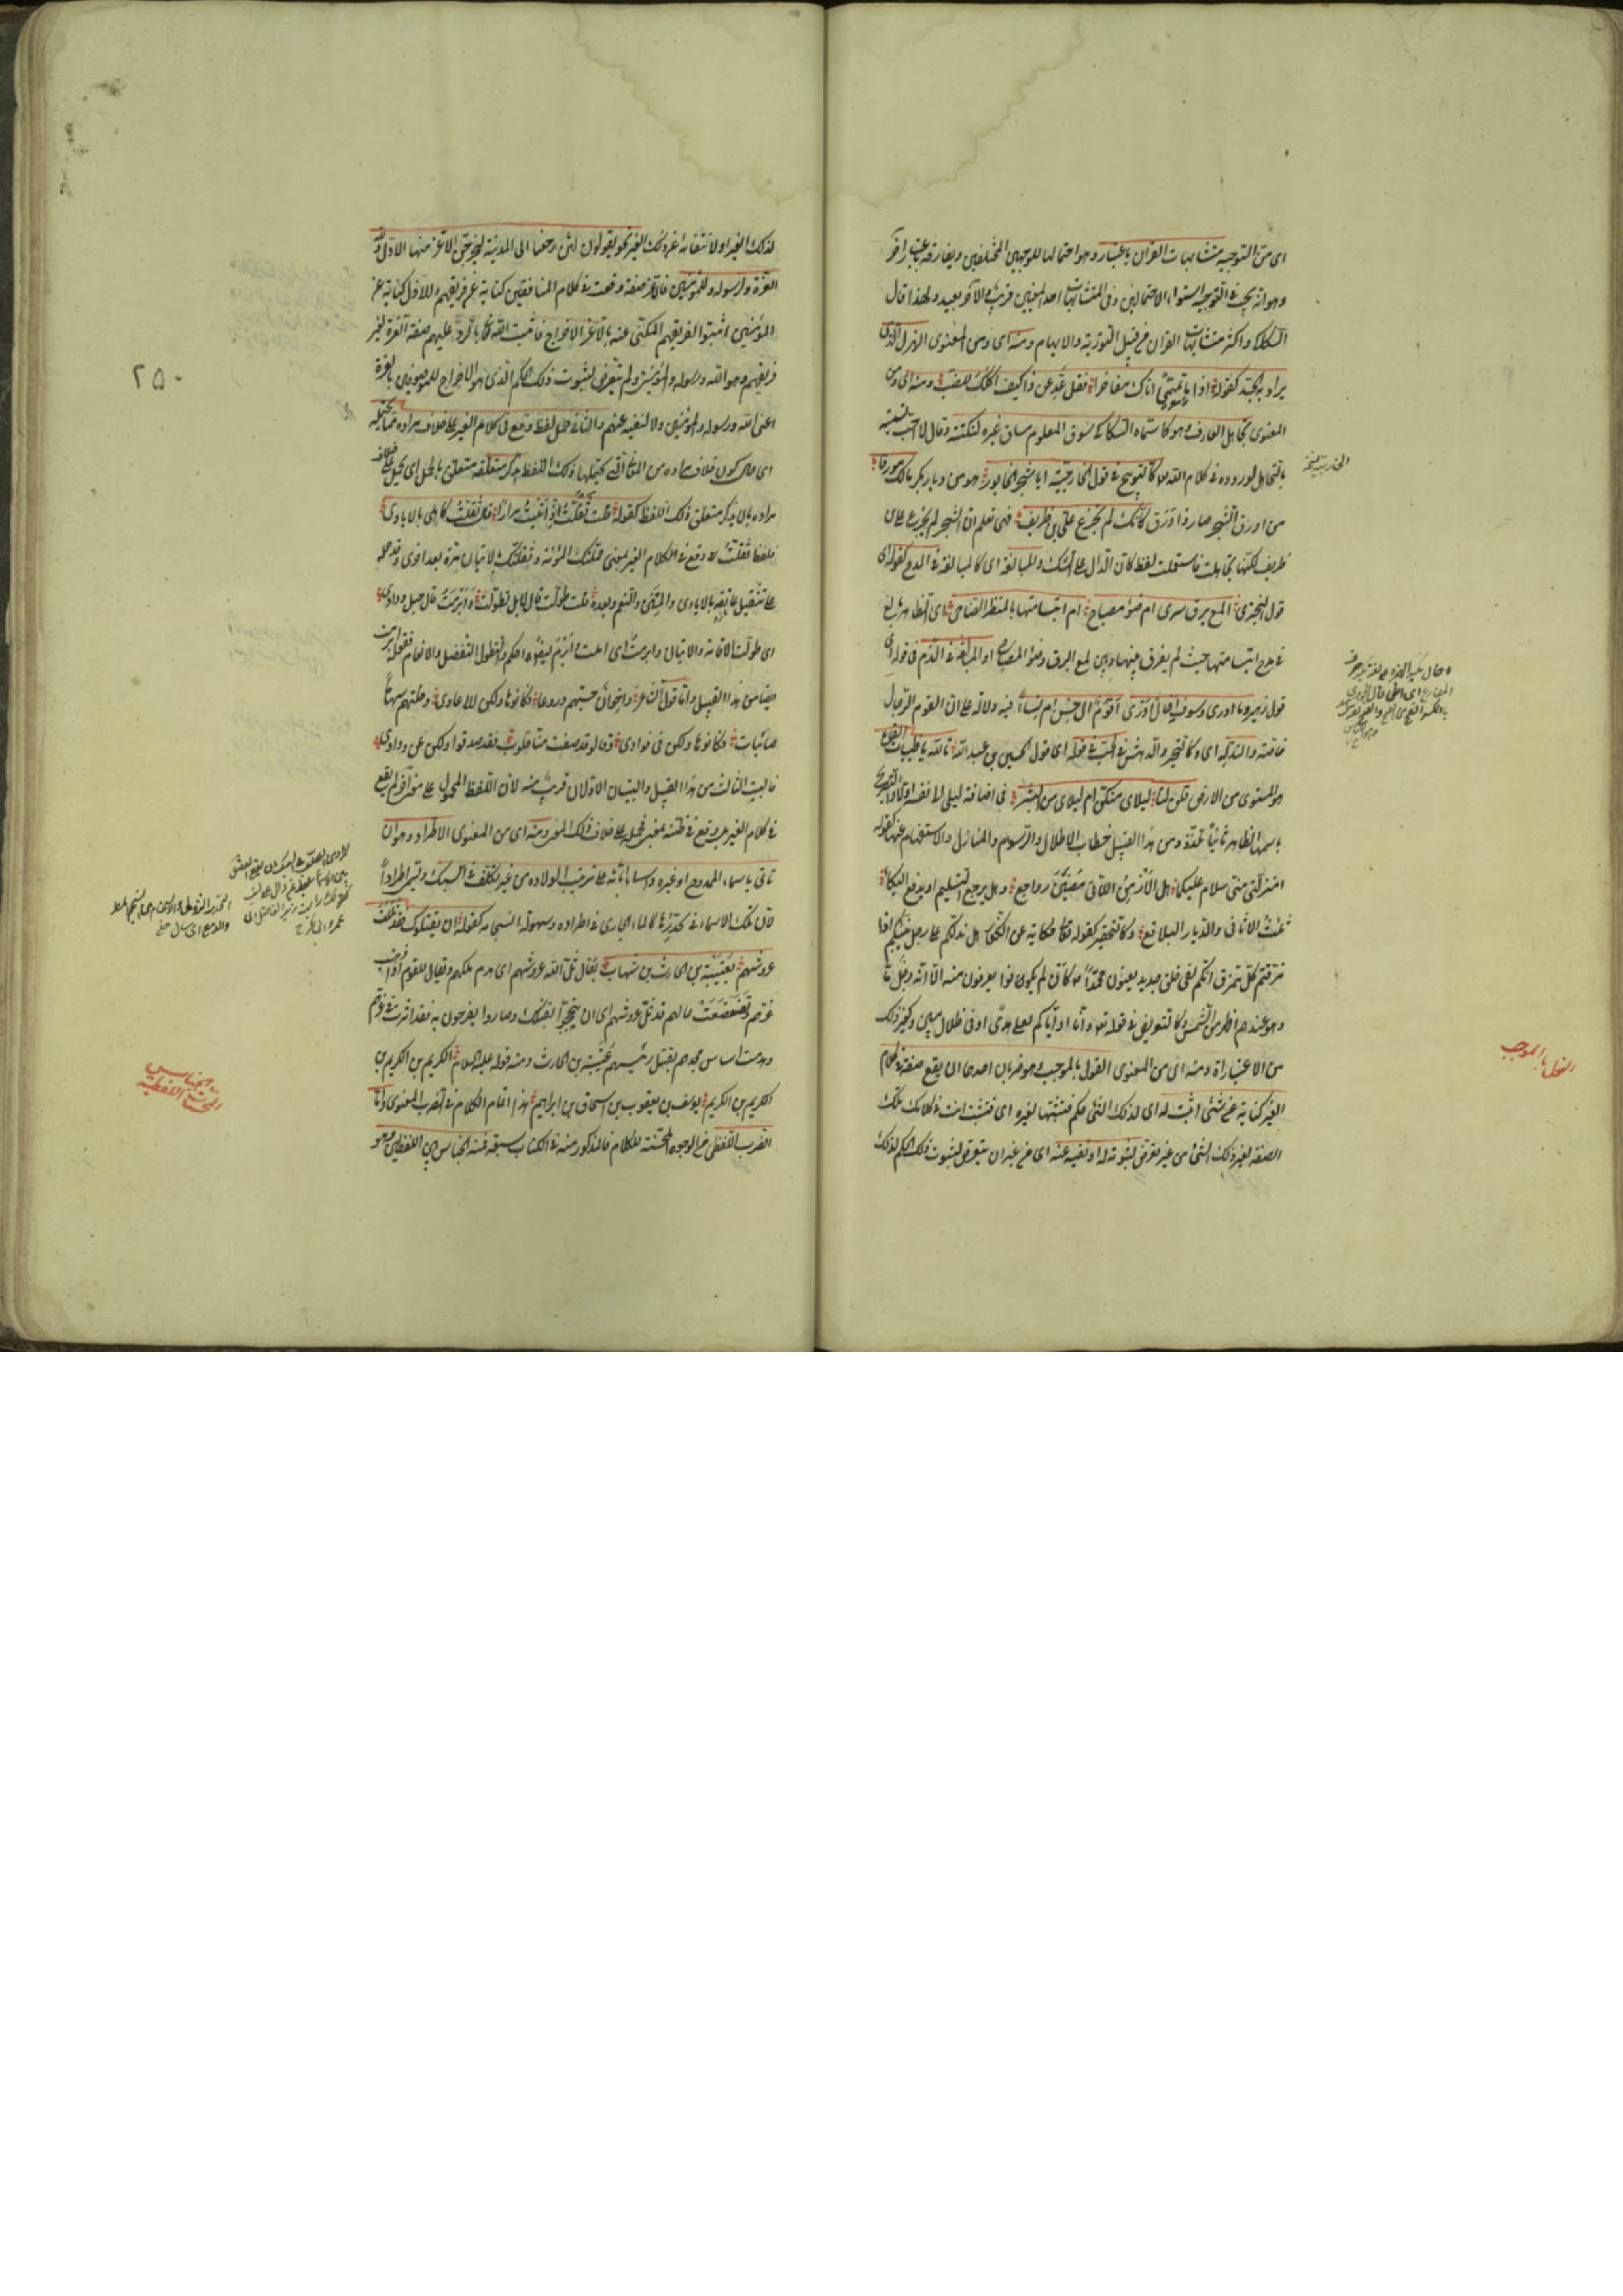 اى من التوجيه متشابهات القرآن باعتبار وهو احتمالها للوجهين المختلفين ويفارقه باعتبار آخر
وهو انه يجب فى التوجيه استواء الاحتمالين وفى المتشابهات احد المعنيين قريب والآخر بعيد ولهذا قال
السكاكى واكثر متشابهات القرآن من قبيل التورية والايهام ومنه اى ومن المعنوى الهزل الذى
يراد به الجد كقوله اذا ما تميمى اتاك مفاخرا فقل عد عن ذا كيف اكلك للضب ومنه اى ومن
المعنوى تجاهل العارف وهو كما سماه السكاكى سوق المعلوم مساق غيره لنكتة وقال لا احب تسميته
بالتجاهل لوروده فى كلام الله تعالى كالتوبيخ فى قول الخارجية ايا شجر الخابور هو من ديار بكر مالك مورقا
من اورق الشجر صار ذا ورق كأنك لم تجزع على ابن طريف فهى تعلم ان الشجر لم يجزع على ابن
طريف لكنها تجاهلت فاستعملت لفظ كأن الدال على الشك والمبالغة اى كالمبالغة فى المدح كقوله اى
قول البحترى المع برق سرى ام ضوء مصباح ام ابتسامتها بالمنظر الضاحى اى الظاهر بالغ
فى مدح ابتسامتها حيث لم يفرق بينها وبين لمع البرق وضوء المصباح او المبالغة فى الذم فى قوله اى
قول زهير وما ادرى وسوف اخال ادرى اقوم آل حصن ام نساء فيه دلالة على ان القوم الرجال
خاصة والتدله اى وكالتحير والدهش فى الحب فى قوله اى قول الحسين بن عبد الله تالله يا ظبيات القاع
هو المستوى من الارض قلن لنا ليلاى منكن ام ليلى من البشر فى اضافة ليلى الى نفسه اولا والتصريح
باسمها الظاهر ثانيا تلذذ ومن هذا القبيل خطاب الاطلال والرسوم والمنازل والاستفهام عنها كقوله
امنزلتى مى سلام عليكما هل الازمن اللاتى مضين رواجع وهل يرجع التسليم او يدفع البكاء
ثلث الاثافى والديار البلاقع وكالتحقير كقوله تعالى حكاية عن الكفار هل ندلكم على رجل ينبئكم اذا
مزقتم كل ممزق انكم لفى خلق جديد يعنون محمدا كأن لم يكونوا يعرفون منه الا انه رجل ما
وهو عندهم اظهر من الشمس وكالتعريض فى قوله تعالى وانا او اياكم لعلى هدى او فى ضلال مبين وكغير ذلك
من الاعتبارات ومنه اى من المعنوى القول بالموجب وهو ضربان احدهما ان يقع صفة فى كلام
الغير كناية عن شئ اثبت له اى لذلك الشئ حكم فتثبتها لغيره اى فتثبت انت فى كلامك تلك
الصفة لغير ذلك الشئ من غير تعرض لثبوته له او نفيه عنه اى من غير ان يتعرض لثبوت ذلك الحكم لذلك
الخارجية نسخة
القول بالموجب
لذلك الغير او لانتفائه عن ذلك الغير نحو يقولون لئن رجعنا الى المدينة ليخرجن الاعز منها الاذل ولله
العزة ولرسوله وللمؤمنين فالاعز صفة وقعت فى كلام المنافقين كناية عن فريقهم والاذل كناية عن
المؤمنين اثبتوا لفريقهم المكنى عنه بالاعز الاخراج فاثبت الله تعالى بالرد عليهم صفة العزة لغير
فريقهم وهو الله ورسوله والمؤمنين ولم يتعرض لثبوت ذلك الحكم الذى هو الاخراج للموصوفين بالعزة
اعنى الله ورسوله والمؤمنين ولا لنفيه عنهم والثانى حمل لفظ وقع فى كلام الغير على خلاف مراده مما يحتمله
اى حال كون خلاف مراده من المعانى التى يحتملها ذلك اللفظ بذكر متعلقه متعلق بالحمل اى يحمل على خلاف
مراده بان يذكر متعلق ذلك اللفظ كقوله قلت ثقلت اذ اتيت مرارا قال ثقلت كاهلى بالايادى
فلفظ ثقلت وقع فى كلام الغير بمعنى حملتك المؤنة وثقلتك بالاتيان مرة بعد اخرى وقد حمله
على تثقيل عاتقه بالايادى والمنن والنعم وبعده قلت طولت قال لا بل تطولت وابرمت قال حبل ودادى
اى طولت الاقامة والاتيان وابرمت اى امللت وابرم ايضا احكم والتطول التفضل والانعام فقوله ابرمت
ايضا من هذا القبيل واما قول الشاعر واخوان حسبتهم دروعا فكانوها ولكن للاعادى وخلتهم سهاما
صائبات فكانوها ولكن فى فؤادى وقالوا قد صفت منا قلوب فقد صدقوا ولكن عن ودادى
فالبيت الثالث من هذا القبيل والبيتان الاولان قريب منه لان اللفظ المحمول على معنى آخر لم يقع
فى كلام الغير بل وقع فى ظنه بمعنى فحمله على خلاف ذلك المعنى ومنه اى من المعنوى الاطراد وهو ان
تأتى باسماء الممدوح او غيره واسماء آبائه على ترتيب الولادة من غير تكلف فى السبك وتسمى اطرادا
لان تلك الاسماء فى تحدرها كالماء الجارى فى اطراده وسهولة انسجامه كقوله ان يقتلوك فقد ثللت
عروشهم بعتيبة بن الحارث بن شهاب يقال ثل الله عروشهم اى هدم ملكهم ويقال للقوم اذا ذهب
عزهم وتضعضعت حالهم قد ثل عروشهم اى ان يتبجحوا بقتلك وصاروا يفرحون به فقد اثرت فى عزهم
وهدمت اساس مجدهم بقتل رئيسهم عتيبة بن الحارث ومنه قوله عليه السلام الكريم بن الكريم بن
الكريم بن الكريم يوسف بن يعقوب بن اسحاق بن ابراهيم هذا تمام الكلام فى الضرب المعنوى واما
الضرب اللفظى من الوجوه المحسنة للكلام فالمذكور منه فى الكتاب سبعة فمنه الجناس بين اللفظين وهو
٢٥٠